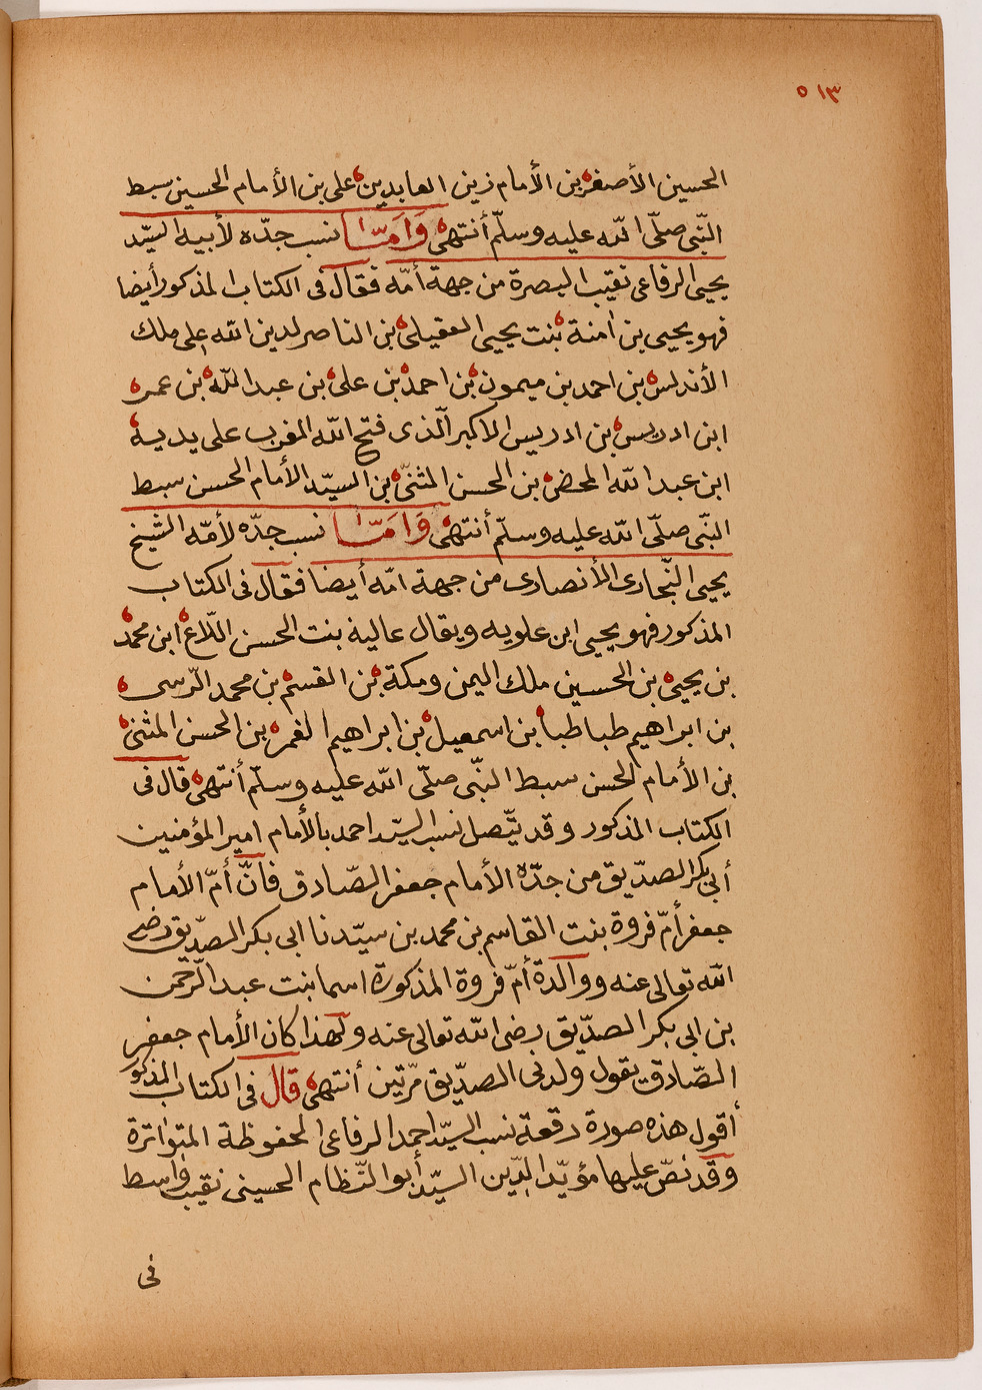 ٥١٣
الحسين الأصغر بن الأمام زين العابدين على بن الأمام الحسين سبط
النّبى صلّى الله عليه وسلّم أنتهى وَامَّا نسب جدّه لأبيه السيّد
يحيى الرفاعى نقيب البصرة من جهة أمّه فقال فى الكتاب المذكور أيضا
فهو يحيى بن امنة بنت يحيى العقيلى بن الناصر لدين الله على ملك
الأندلس بن احمد بن ميمون بن احمد بن على بن عبد الله بن عمر
ابن ادريس بن ادريس الاكبر الّذى فتح الله المغرب على يديه
ابن عبد الله المحض بن الحسن المثنّى بن السيّد الأمام الحسن سبط
النبّى صلّى الله عليه وسلّم أنتهى وَامَّا نسب جدّه لأمّه الشيخ
يحيى النّجارى الأنصارى من جهة امّه أيضا فقال فى الكتاب
المذكور فهو يحيى ابن علويه ويقال عالية بنت الحسن اللّاع ابن محمد
بن يحيى بن الحسين ملك اليمن ومكة بن القسم بن محمد الرّسى
بن ابراهيم طباطبا بن اسمعيل بن ابراهيم الغمر بن الحسن المثنى
بن الأمام الحسن سبط النبّى صلّى الله عليه وسلّم أنتهى قال فى
الكتاب المذكور وقد يتّصل نسب السيّد احمد بالأمام امير المؤمنين
أبى بكر الصدّيق من جدّه الأمام جعفر الصّادق فانّ أمّ الأمام
جعفر أمّ فروة بنت القاسم بن محمد بن سيّدنا ابى بكر الصدّيق رضى
الله تعالى عنه ووالدة أمّ فروة المذكورة اسما بنت عبد الرّحمن
بن ابى بكر الصدّيق رضى الله تعالى عنه ولهذا كان الأمام جعفر
الصّادق يقول ولدنى الصدّيق مرّتين أنتهى قال فى الكتاب المذكور
أقول هذه صورة رقعة نسب السيّد احمد الرفاعى المحفوظة المتواترة
وقد نصّ عليها مؤيّد الدّين السيّد أبو النّظام الحسينى نقيب واسط
فى